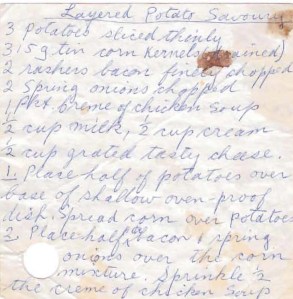 Layered Potato Savoury
3 Potatoes sliced thinly
315g tin corn Kernels (drained)
2 rashers bacon finely chopped
2 Spring onions chopped
1 Pkt. Creme of chicken Soup
1/2 cup milk, 1/2 cup cream
1/2 cup grated tasty cheese.
1. Place half of potatoes over
base of shallow oven-proof
dish. Spread corn over potatoes
2. Place half of bacon & spring
onions over the corn
mixture. Sprinkle 1/2
the creme of chicken Soup